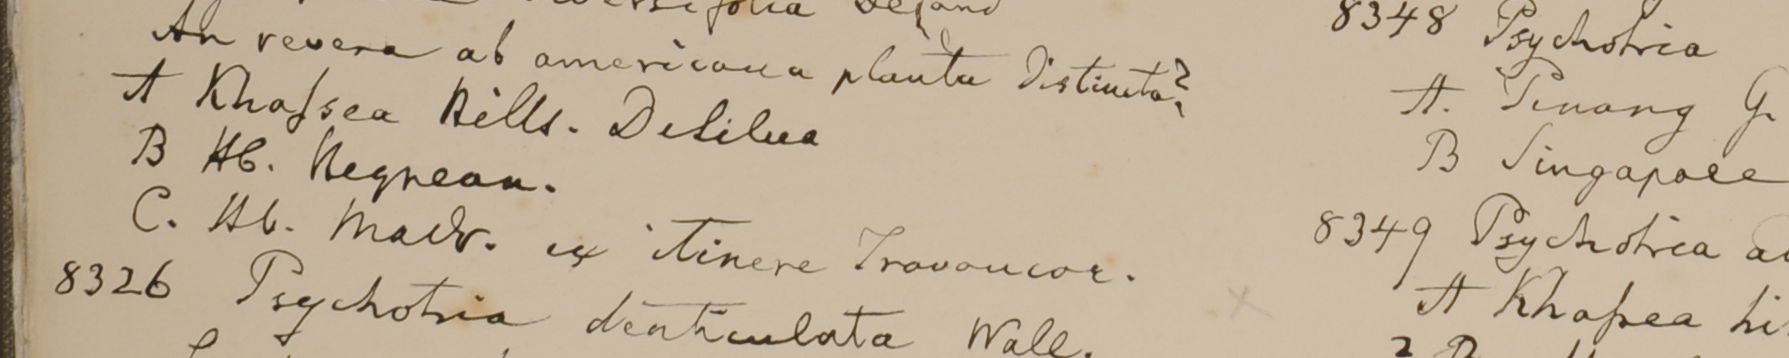 An revera ab americana planta distincta?
A Khaſsea Hills. DeSilva
B Hb. Heynean.
C. Hb. Madr. ex itinere Travancor.
8326 Psychotria denticulata Wall.
8348 Psychotria
A. Pinang G
B Singapore
8349 Psychotria
A Khaſsea hi